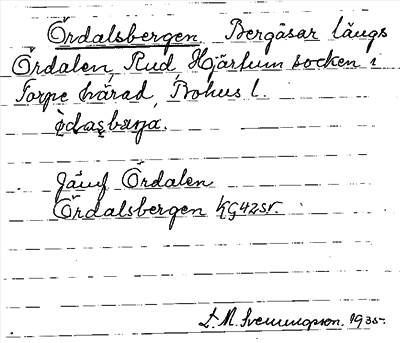 Ördalsbergen Bergåsar längs
Ördalen, Rud, Hjärtum socken i
Torpe härad, Bohus l.
Jämf Ördalen
Ördalsbergen KG42sv.
L. M. Svenungsson. 1935.